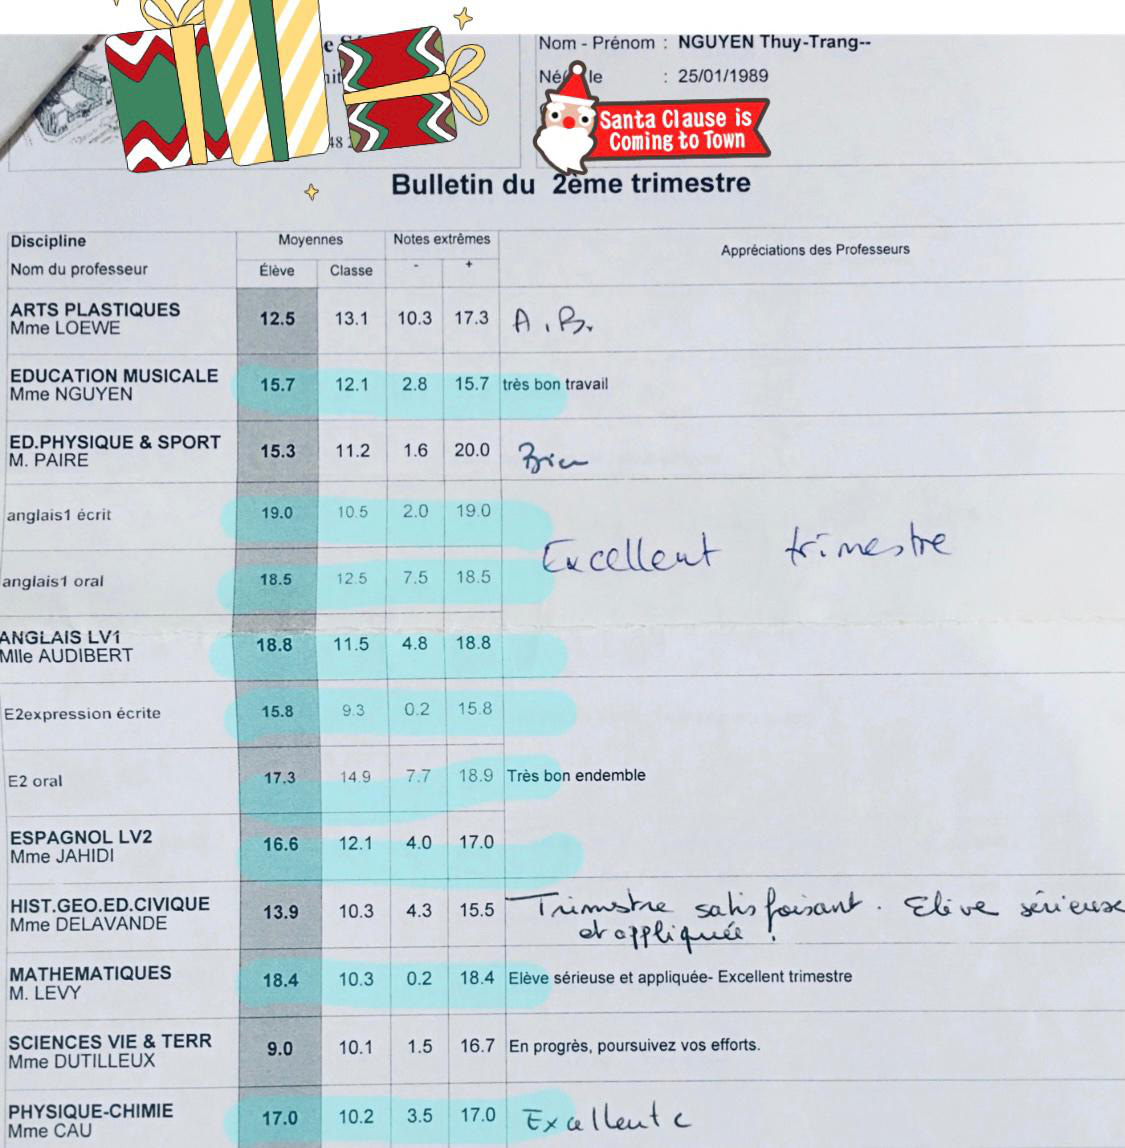 Nom - Prénom : NGUYEN Thuy-Trang--
le : 25/01/1989
Santa Clause is
Coming to Town
Bulletin du 2ème trimestre
Discipline
Nom du professeur
Moyennes
Élève Classe
Notes extrêmes
- +
Appréciations des Professeurs
ARTS PLASTIQUES
Mme LOEWE
12.5 13.1 10.3 17.3 A.B.
EDUCATION MUSICALE
Mme NGUYEN
15.7 12.1 2.8 15.7 très bon travail
ED.PHYSIQUE & SPORT
M. PAIRE
15.3 11.2 1.6 20.0 Bien
anglais1 écrit 19.0 10.5 2.0 19.0
Excellent trimestre
anglais1 oral 18.5 12.5 7.5 18.5
ANGLAIS LV1
Mlle AUDIBERT
18.8 11.5 4.8 18.8
E2expression écrite 15.8 9.3 0.2 15.8
E2 oral 17.3 14.9 7.7 18.9 Très bon endemble
ESPAGNOL LV2
Mme JAHIDI
16.6 12.1 4.0 17.0
HIST.GEO.ED.CIVIQUE
Mme DELAVANDE
13.9 10.3 4.3 15.5 Trimestre satisfaisant. Elève sérieuse
et appliquée.
MATHEMATIQUES
M. LEVY
18.4 10.3 0.2 18.4 Elève sérieuse et appliquée- Excellent trimestre
SCIENCES VIE & TERR
Mme DUTILLEUX
9.0 10.1 1.5 16.7 En progrès, poursuivez vos efforts.
PHYSIQUE-CHIMIE
Mme CAU
17.0 10.2 3.5 17.0 Excellent